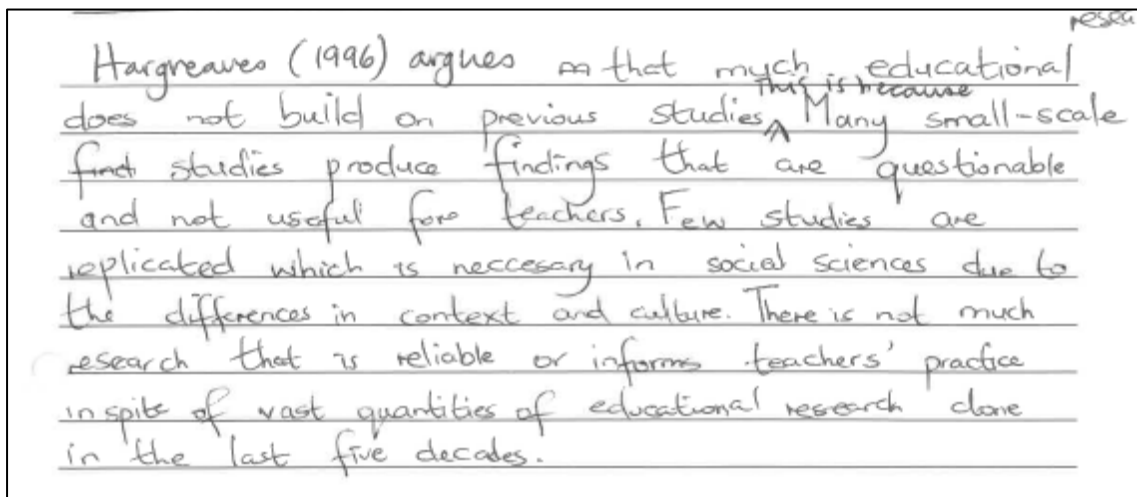 resea
Hargreaves (1996) argues that much educational
This is because
does not build on previous studies. Many small-scale
find studies produce findings that are questionable
and not useful for teachers. Few studies are
replicated which is neccesary in social sciences due to
the differences in context and culture. There is not much
research that is reliable or informs teachers' practice
in spite of vast quantities of educational research done
in the last five decades.